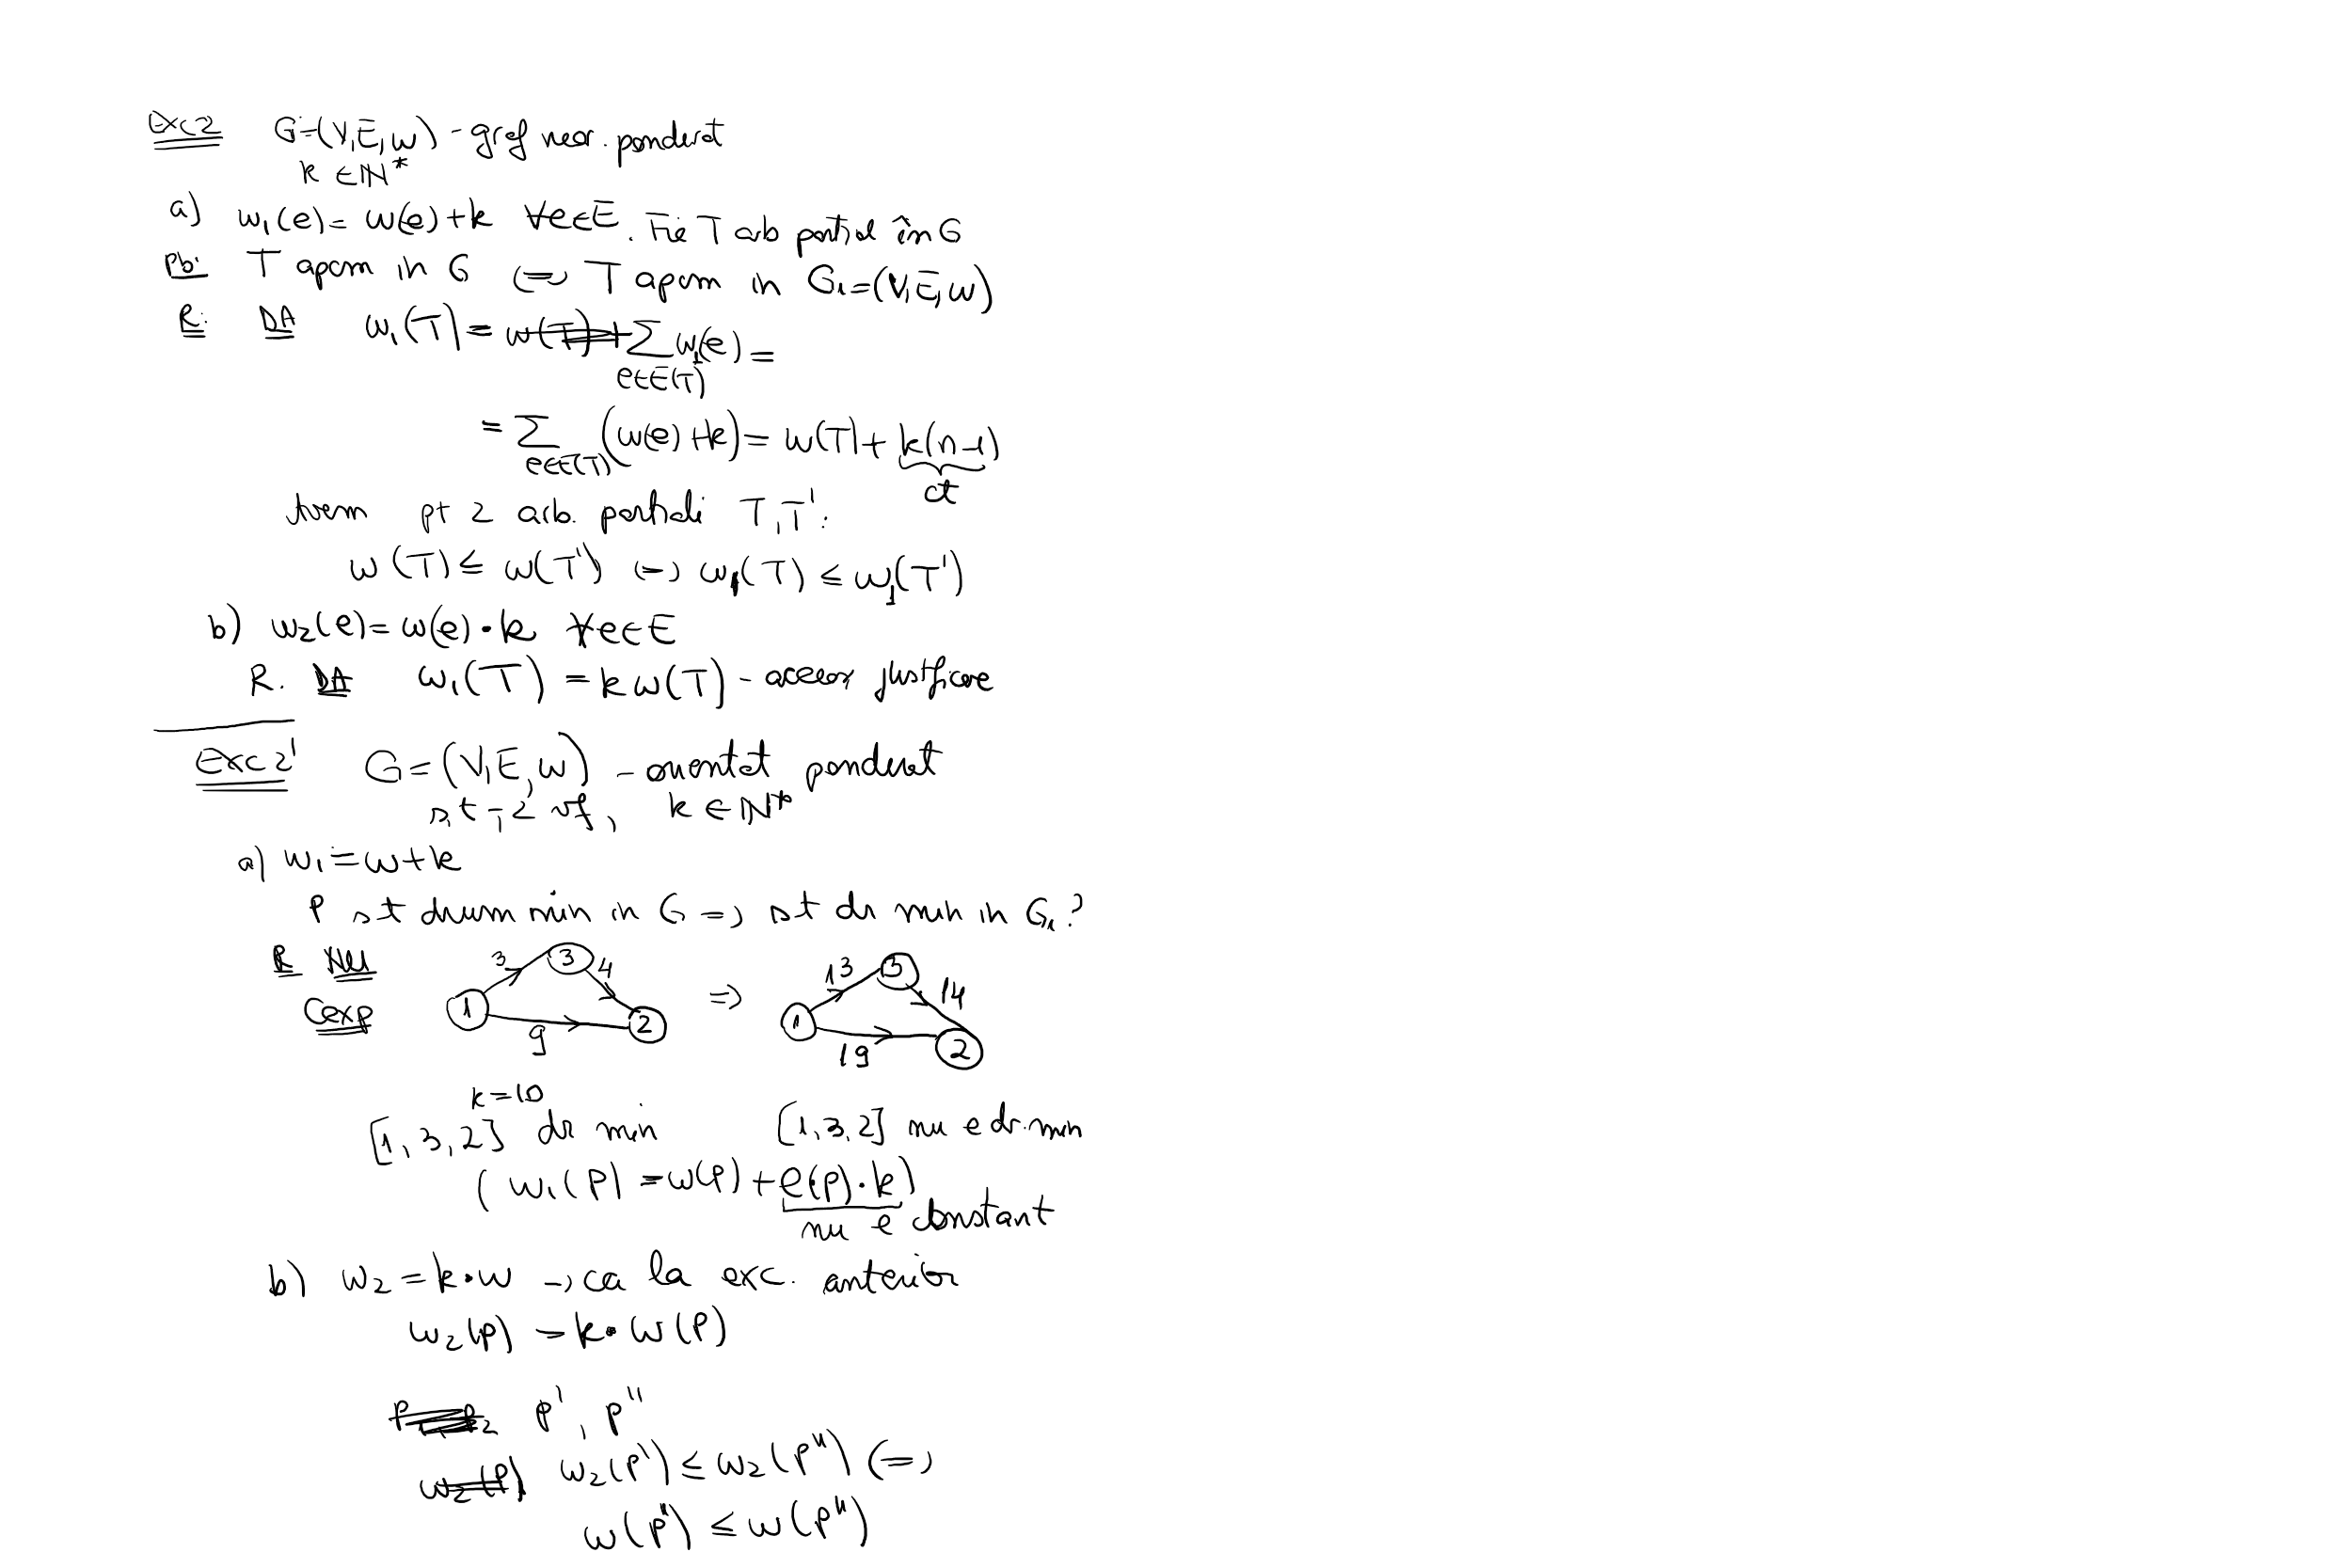 Exc 2 G=(V,E,w) - graf neor. ponderat
k ∈ ℕ*
a) w₁(e) = w(e)+k ∀e∈E. Fie T arb parțial în G
Pb: T apcm in G (=) T apcm in G₁=(V,E,w)
R: DA w₁(T) = w(T)+ ∑ w₁(e) =
e∈E(T)
= ∑ (w(e)+k) = w(T) + k(n-1)
e∈E(T) ct
Avem pt 2 arb. partiali T,T':
w(T) ≤ w(T') (=) w₁(T) ≤ w₁(T')
b) w₂(e) = w(e)·k ∀e∈E
R. DA w₁(T) = k w(T) - aceeași justificare
Exc 2' G=(V,E,w) - orientat ponderat
s,t - 2 vf, k ∈ ℕ*
a) w₁ = w+k
P st drum min in G =) st dr min in G₁?
R Nu
Cexp
1 3 2 3 4 9 => 1 3 2 13 14 19
k=10
[1,3,2] dr min [1,3,2] nu e dr. min
(w₁(P) = w(P) + l(P)·k)
nu e constant
b) w₂ = k·w -) ca la exc. anterior
w₂(P) = k·w(P)
P', P''
w₂(P) w₂(P') ≤ w₂(P'') (=)
w(P'') ≤ w(P'')